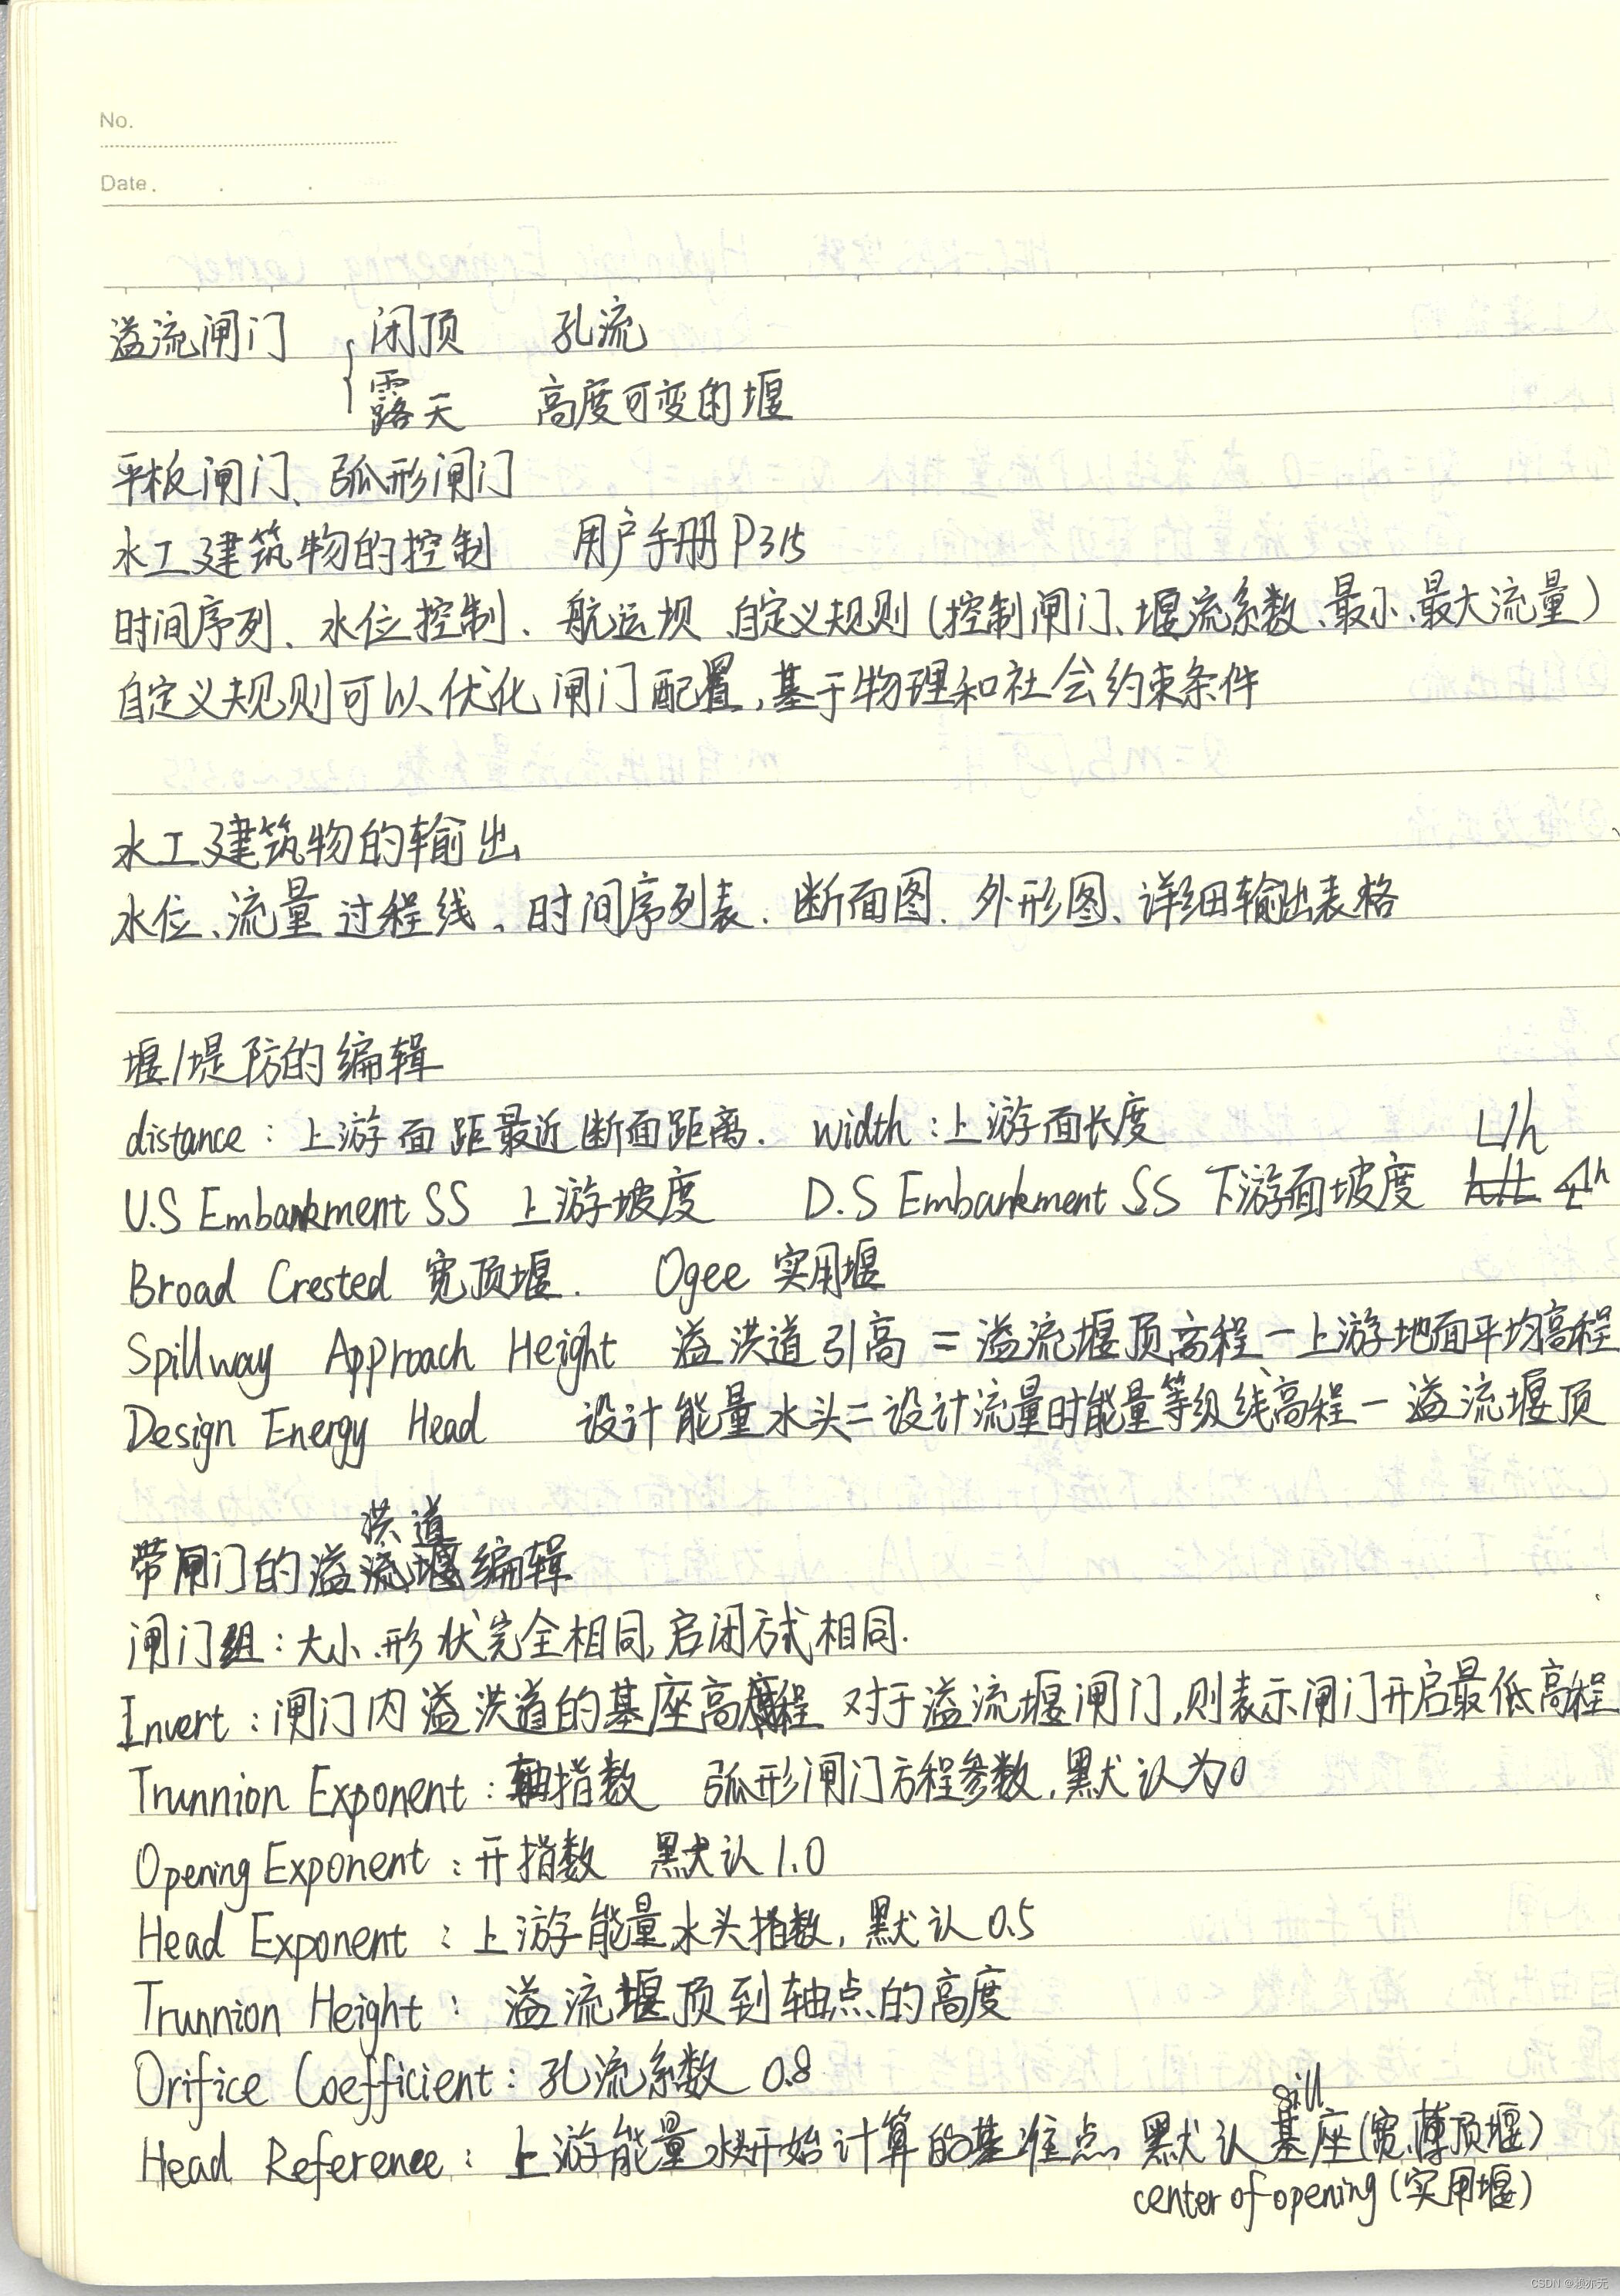 No.
Date.
溢流闸门 { 闭顶 孔流
露天 高度可变的堰
平板闸门、弧形闸门
水工建筑物的控制 用户手册P315
时间序列、水位控制、航运坝、自定义规则(控制闸门、堰流系数、最小、最大流量)
自定义规则可以优化闸门配置,基于物理和社会约束条件
水工建筑物的输出
水位、流量过程线、时间序列表、断面图、外形图、详细输出表格
堰/堤防的编辑
distance:上游面距最近断面距离. width:上游面长度
L/h
U.S Embankment SS 上游坡度 D.S Embankment SS 下游面坡度
Broad Crested 宽顶堰. Ogee 实用堰
Spillway Approach Height 溢洪道引高 = 溢流堰顶高程 - 上游地面平均高程
Design Energy Head 设计能量水头=设计流量时能量等级线高程-溢流堰顶
洪道
带闸门的溢流堰编辑
闸门组:大小、形状完全相同,启闭方式相同.
Invert:闸门内溢洪道的基座高程 对于溢流堰闸门,则表示闸门开启最低高程
Trunnion Exponent:轴指数 弧形闸门方程参数,默认为0
Opening Exponent:开指数 默认1.0
Head Exponent:上游能量水头指数,默认0.5
Trunnion Height:溢流堰顶到轴点的高度
Orifice Coefficient:孔流系数 0.8
sill
Head Reference:上游能量水头开始计算的基准点 默认基座(宽、薄顶堰)
center of opening(实用堰)
CSDN @赖亦无